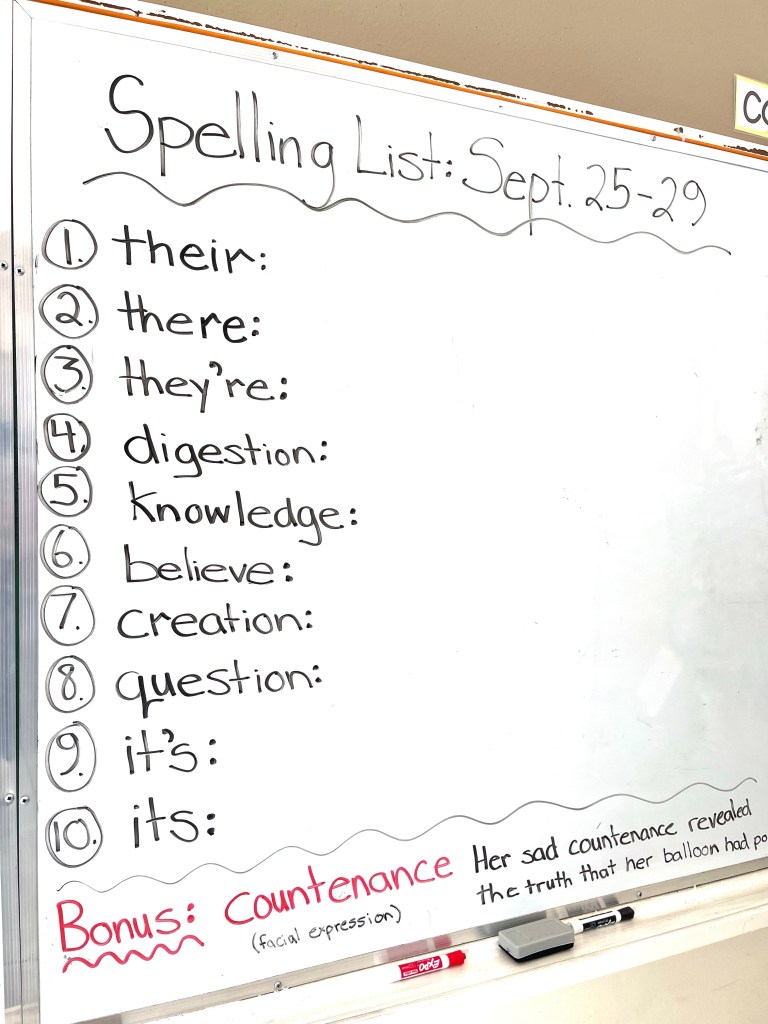 Spelling List: Sept. 25-29
1. their:
2. there:
3. they're:
4. digestion:
5. knowledge:
6. believe:
7. creation:
8. question:
9. it's:
10. its:
Bonus: countenance
(facial expression)
Her sad countenance revealed
the truth that her balloon had po
EXPO
CO